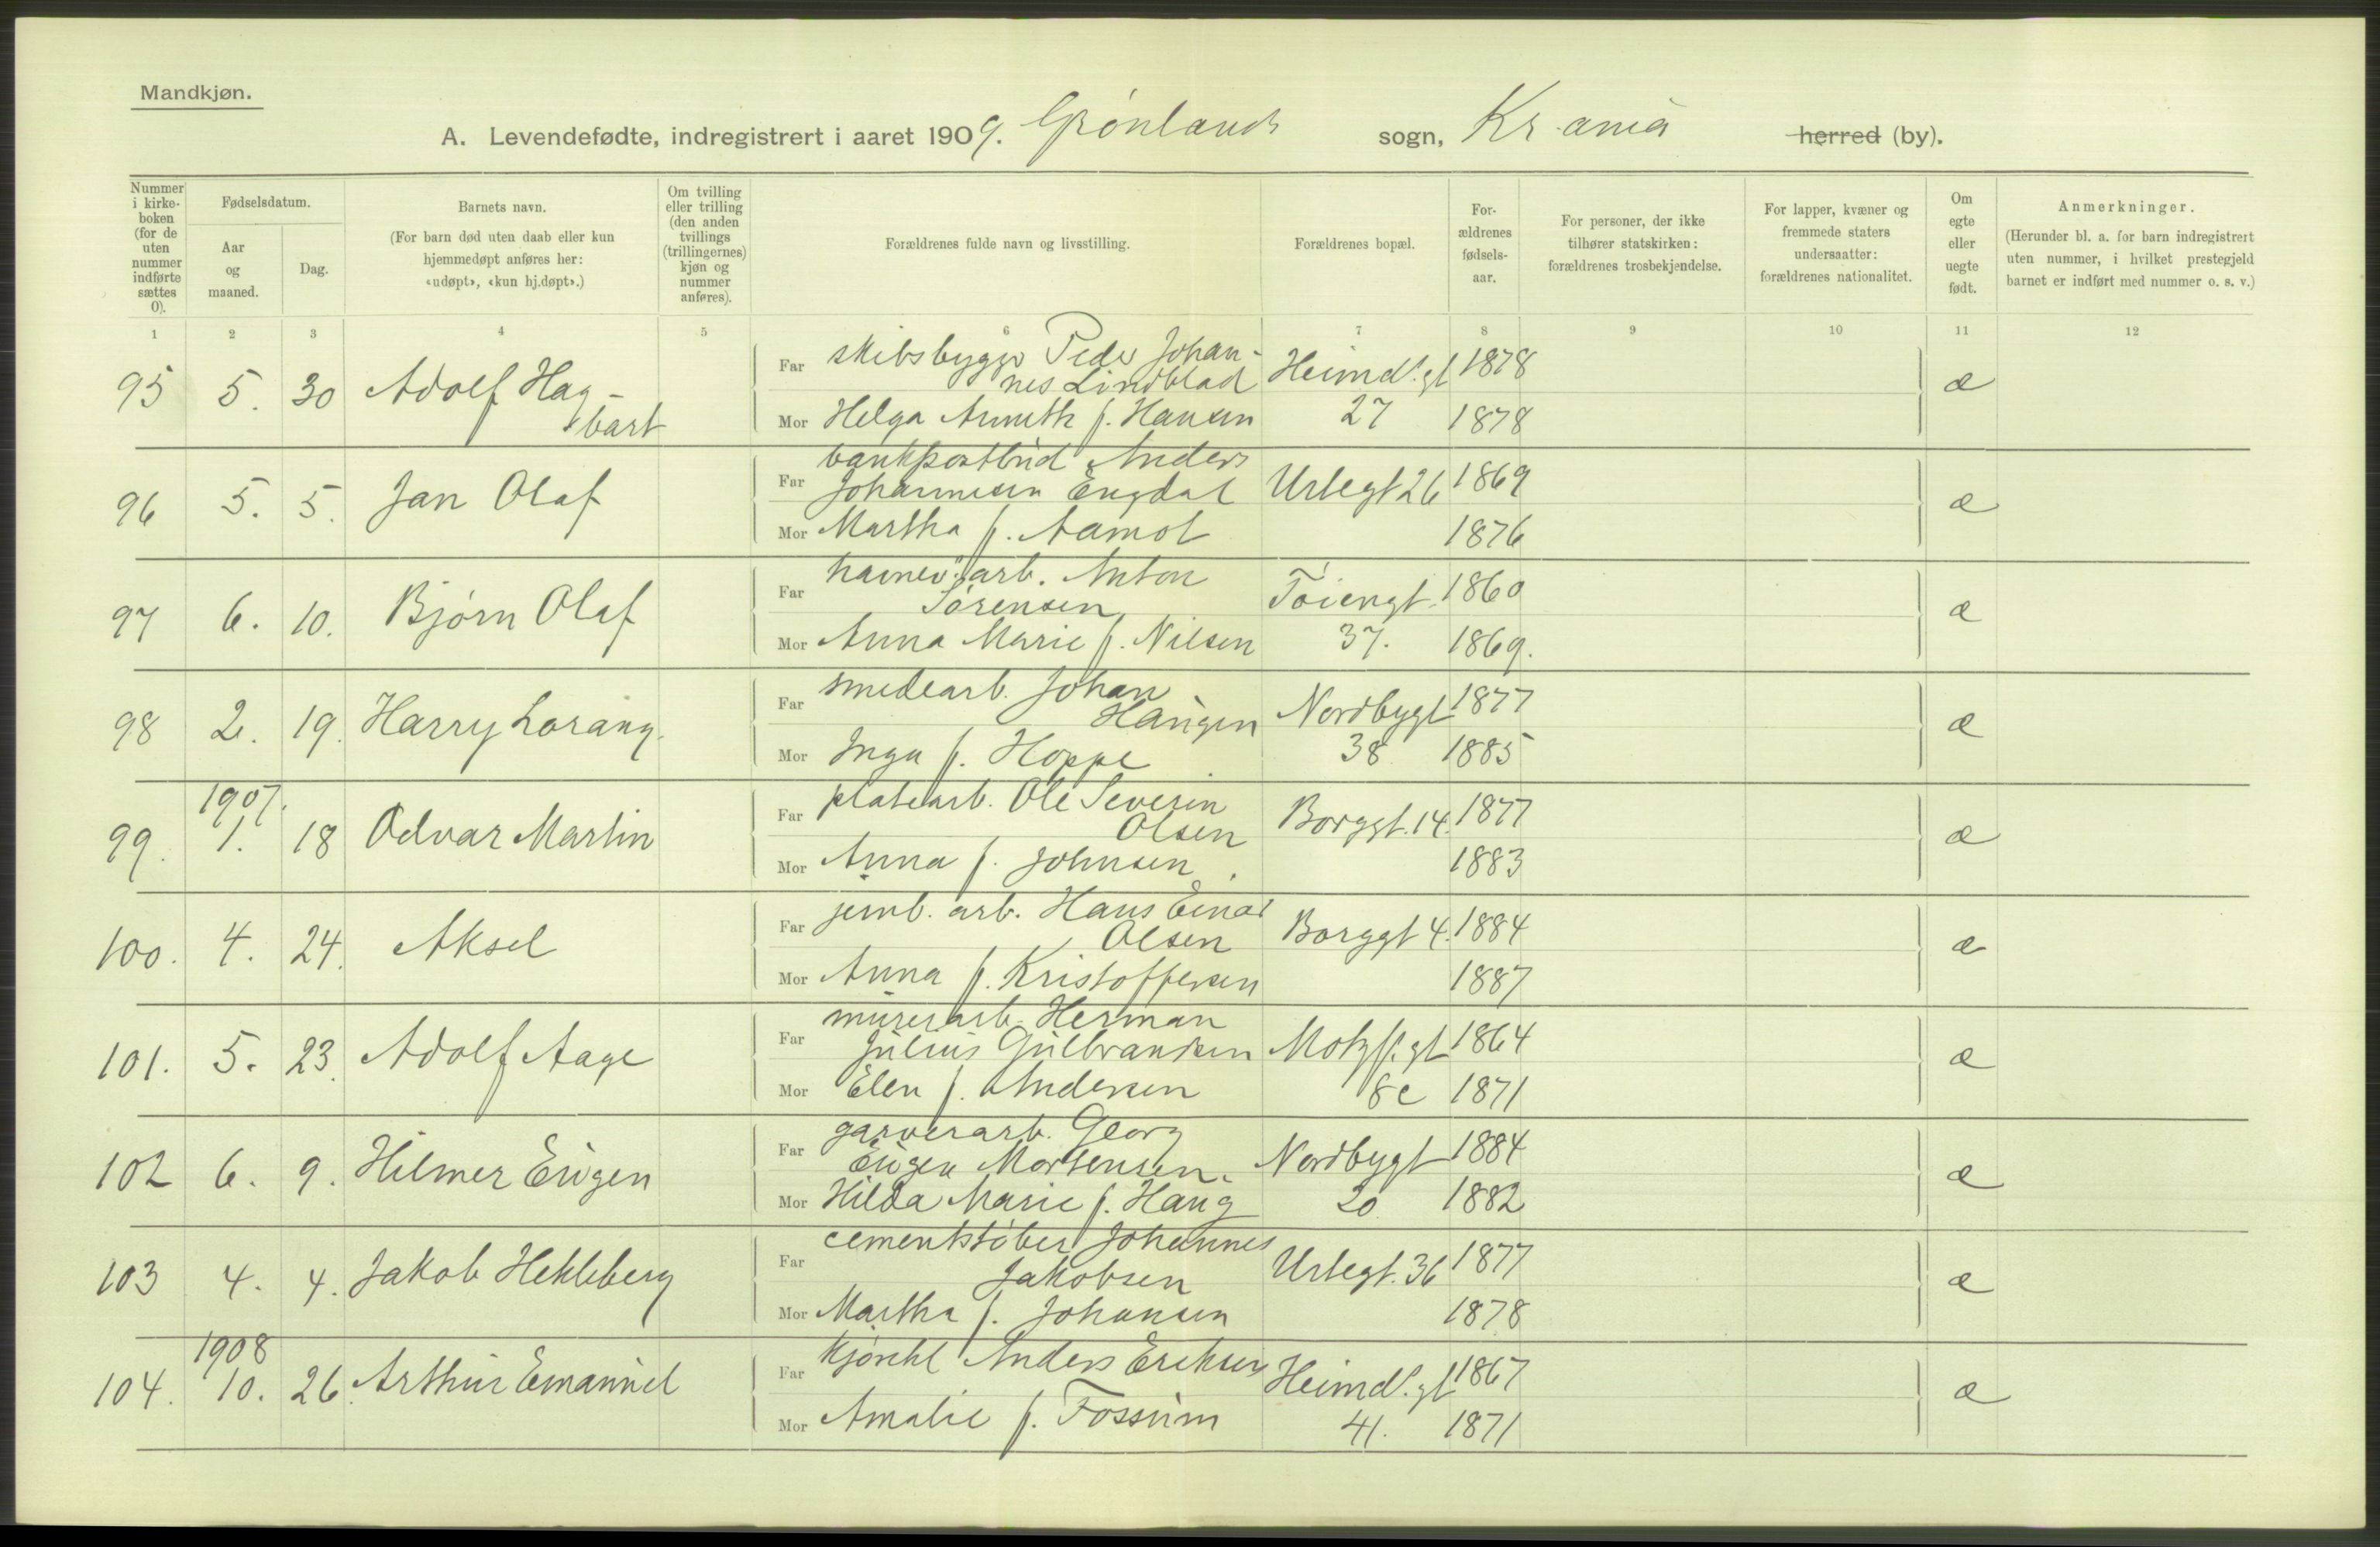 Mandkjøn.
A. Levendefødte, indregistrert i aaret 1909. Grønlands sogn, Kr.ania herred (by).
Nummer i kirkeboken (for de uten nummer indførte sættes 0).
Fødselsdatum.
Aar og maaned.
Dag.
Barnets navn.
(For barn død uten daab eller kun hjemmedøpt anføres her: «udøpt», «kun hj.døpt».)
Om tvilling eller trilling (den anden tvillings (trillingernes) kjøn og nummer anføres).
Forældrenes fulde navn og livsstilling.
Forældrenes bopæl.
Forældrenes fødselsaar.
For personer, der ikke tilhører statskirken: forældrenes trosbekjendelse.
For lapper, kvæner og fremmede staters undersaatter: forældrenes nationalitet.
Om egte eller uegte født.
Anmerkninger.
(Herunder bl. a. for barn indregistrert uten nummer, i hvilket prestegjeld barnet er indført med nummer o. s. v.)
1 2 3 4 5 6 7 8 9 10 11 12
95 5. 30 Adolf Hag-
bart
Far skibsbygger Peder Johan-
nes Lindblad Heimd.gt 1878 æ
Mor Helga Annette f. Hansen 27 1878
96 5. 5. Jan Olaf
Far bankpostbud Anders
Johannesen Engdal Urtegt 26 1869 æ
Mor Martha f. Aamot 1876
97 6. 10. Bjørn Olaf
Far havnev. arb. Anton
Sørensen Tøiengt. 1860 æ
Mor Anna Marie f. Nilsen 37. 1869.
98 2. 19. Harry Lorang.
Far smedearb. Johan
Haugen Nordbygt 1877 æ
Mor Inga f. Hoppe 38 1885
1907.
99. 1. 18 Odvar Martin
Far platearb. Ole Severin
Olsen Borggt. 14. 1877 æ
Mor Anna f. Johnsen 1883
100. 4. 24. Aksel
Far jernb. arb. Hans Einar
Olsen Borggt 4. 1884 æ
Mor Anna f. Kristoffersen 1887
101. 5. 23. Adolf Aage
Far murerarb. Herman
Julius Gulbrandsen Motzf.gt 1864 æ
Mor Elen f. Andersen 8c 1871
102 6. 9. Hilmer Eugen
Far garverarb. Georg
Eugen Mortensen. Nordbygt 1884 æ
Mor Hilda Marie f. Haug 20 1882
103 4. 4. Jakob Hekleberg
Far cementstøber Johannes
Jakobsen Urtegt. 36 1877 æ
Mor Martha f. Johansen 1878
1908
104. 10. 26. Arthur Emanuel
Far Anders Eriksen Heimd.gt 1867 æ
Mor Amalie f. Fossum 41. 1871